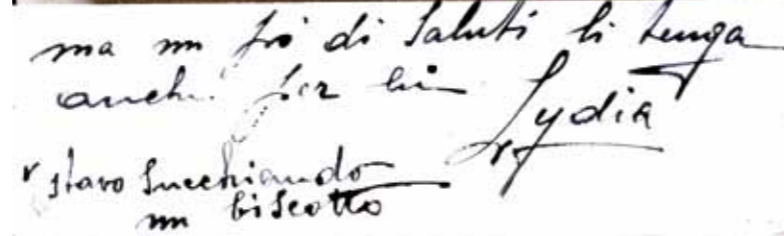 ma un pò di Saluti li tenga
anche per lui
Lydia
stavo succhiando
un biscotto